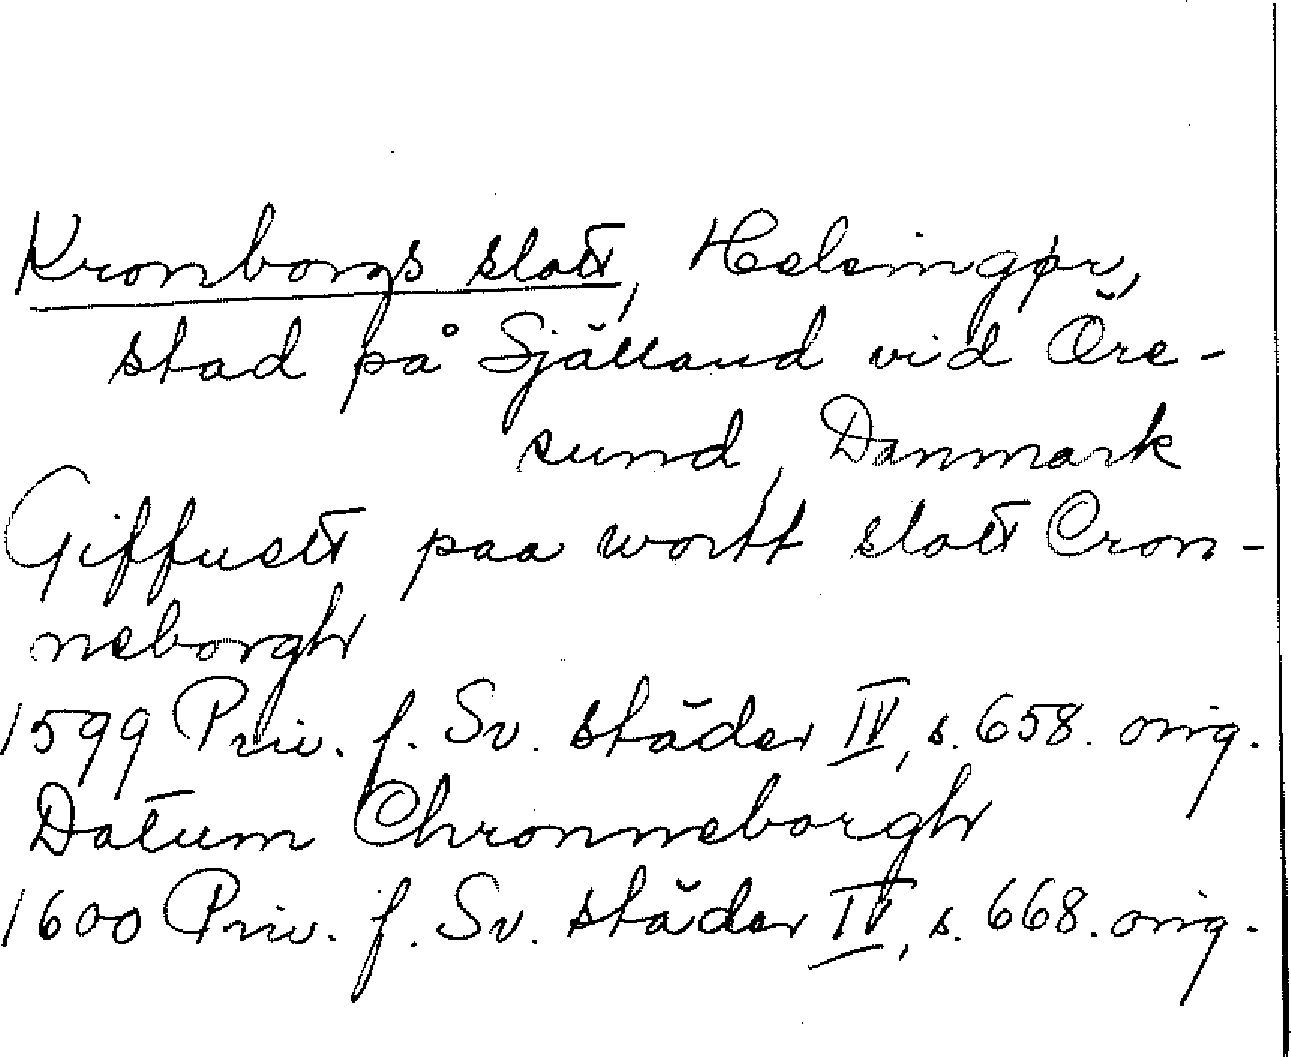 Kronborgs slott, Helsingør,
stad på Själland vid Öre-
sund, Danmark
Giffuett paa wortt slott Cron-
neborgh
1599 Priv. f. Sv. städer IV, s. 658. orig.
Datum Chronneborgh
1600 Priv. f. Sv. städer IV, s. 668. orig.